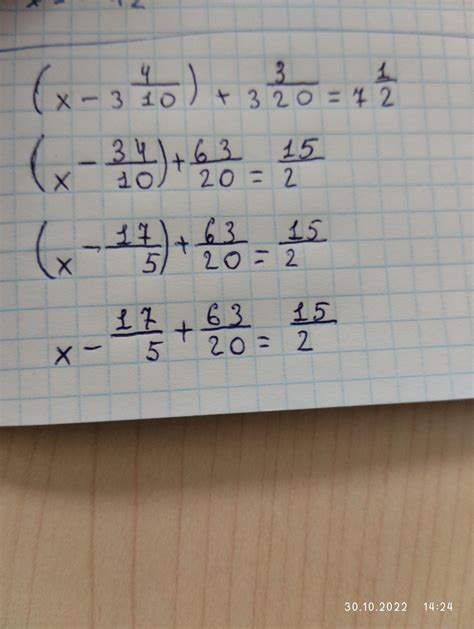 (x - 3 4/10) + 3 3/20 = 7 1/2
(x - 34/10) + 63/20 = 15/2
(x - 17/5) + 63/20 = 15/2
x - 17/5 + 63/20 = 15/2
30.10.2022 14:24